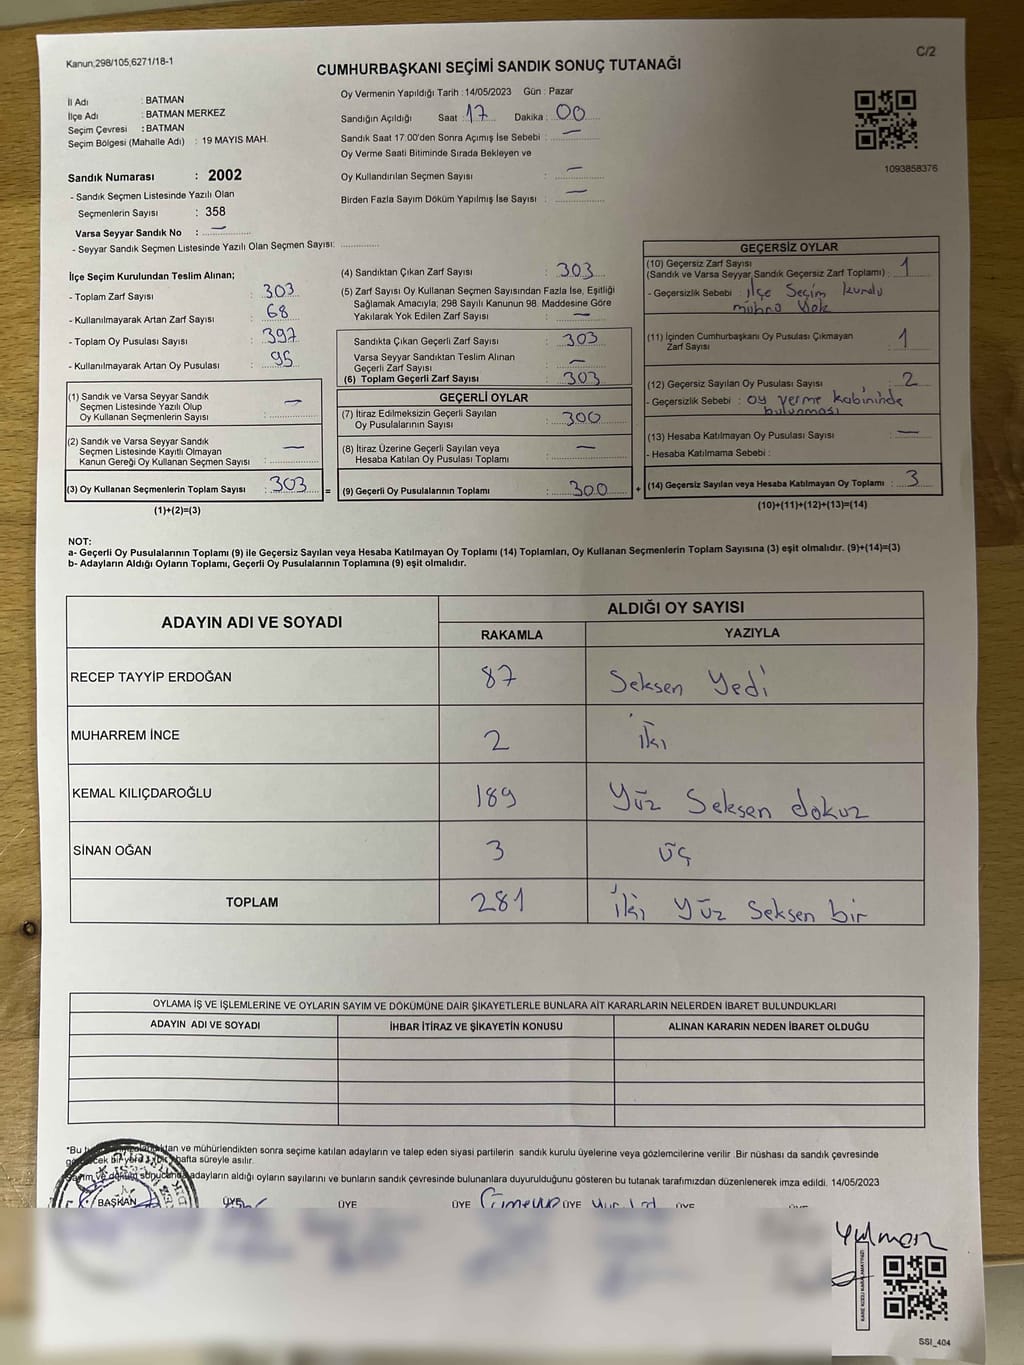 Kanun;298/105,6271/18-1
C/2
CUMHURBAŞKANI SEÇİMİ SANDIK SONUÇ TUTANAĞI
İl Adı : BATMAN
İlçe Adı : BATMAN MERKEZ
Seçim Çevresi : BATMAN
Seçim Bölgesi (Mahalle Adı) : 19 MAYIS MAH.
Oy Vermenin Yapıldığı Tarih : 14/05/2023 Gün : Pazar
Sandığın Açıldığı Saat : 17 Dakika : 00
Sandık Saat 17:00'den Sonra Açımış İse Sebebi : —
Oy Verme Saati Bitiminde Sırada Bekleyen ve
Oy Kullandırılan Seçmen Sayısı : —
Birden Fazla Sayım Döküm Yapılmış İse Sayısı : —
1093858376
Sandık Numarası : 2002
- Sandık Seçmen Listesinde Yazılı Olan
Seçmenlerin Sayısı : 358
Varsa Seyyar Sandık No : —
- Seyyar Sandık Seçmen Listesinde Yazılı Olan Seçmen Sayısı:
İlçe Seçim Kurulundan Teslim Alınan;
- Toplam Zarf Sayısı : 303
- Kullanılmayarak Artan Zarf Sayısı : 68
- Toplam Oy Pusulası Sayısı : 397
- Kullanılmayarak Artan Oy Pusulası : 95
(1) Sandık ve Varsa Seyyar Sandık
Seçmen Listesinde Yazılı Olup
Oy Kullanan Seçmenlerin Sayısı : —
(2) Sandık ve Varsa Seyyar Sandık
Seçmen Listesinde Kayıtlı Olmayan
Kanun Gereği Oy Kullanan Seçmen Sayısı : —
(3) Oy Kullanan Seçmenlerin Toplam Sayısı : 303
(1)+(2)=(3)
=
(4) Sandıktan Çıkan Zarf Sayısı : 303
(5) Zarf Sayısı Oy Kullanan Seçmen Sayısından Fazla İse, Eşitliği
Sağlamak Amacıyla, 298 Sayılı Kanunun 98. Maddesine Göre
Yakılarak Yok Edilen Zarf Sayısı : —
Sandıkta Çıkan Geçerli Zarf Sayısı : 303
Varsa Seyyar Sandıktan Teslim Alınan
Geçerli Zarf Sayısı : —
(6) Toplam Geçerli Zarf Sayısı : 303
GEÇERLİ OYLAR
(7) İtiraz Edilmeksizin Geçerli Sayılan
Oy Pusulalarının Sayısı : 300
(8) İtiraz Üzerine Geçerli Sayılan veya
Hesaba Katılan Oy Pusulası Toplamı : —
(9) Geçerli Oy Pusulalarının Toplamı : 300
+
GEÇERSİZ OYLAR
(10) Geçersiz Zarf Sayısı
(Sandık ve Varsa Seyyar Sandık Geçersiz Zarf Toplamı) : 1
- Geçersizlik Sebebi : ilçe Seçim kurulu
mührü Yok
(11) İçinden Cumhurbaşkanı Oy Pusulası Çıkmayan
Zarf Sayısı : 1
(12) Geçersiz Sayılan Oy Pusulası Sayısı : 2
- Geçersizlik Sebebi : oy verme kabininde
bulunması
(13) Hesaba Katılmayan Oy Pusulası Sayısı : —
- Hesaba Katılmama Sebebi :
(14) Geçersiz Sayılan veya Hesaba Katılmayan Oy Toplamı : 3
(10)+(11)+(12)+(13)=(14)
NOT:
a- Geçerli Oy Pusulalarının Toplamı (9) ile Geçersiz Sayılan veya Hesaba Katılmayan Oy Toplamı (14) Toplamları, Oy Kullanan Seçmenlerin Toplam Sayısına (3) eşit olmalıdır. (9)+(14)=(3)
b- Adayların Aldığı Oyların Toplamı, Geçerli Oy Pusulalarının Toplamına (9) eşit olmalıdır.
ADAYIN ADI VE SOYADI ALDIĞI OY SAYISI
RAKAMLA YAZIYLA
RECEP TAYYİP ERDOĞAN 87 Seksen Yedi
MUHARREM İNCE 2 iki
KEMAL KILIÇDAROĞLU 189 Yüz Seksen dokuz
SİNAN OĞAN 3 üç
TOPLAM 281 İki Yüz Seksen bir
OYLAMA İŞ VE İŞLEMLERİNE VE OYLARIN SAYIM VE DÖKÜMÜNE DAİR ŞİKAYETLERLE BUNLARA AİT KARARLARIN NELERDEN İBARET BULUNDUKLARI
ADAYIN ADI VE SOYADI İHBAR İTİRAZ VE ŞİKAYETİN KONUSU ALINAN KARARIN NEDEN İBARET OLDUĞU
*Bu ve mühürlendikten sonra seçime katılan adayların ve talep eden siyasi partilerin sandık kurulu üyelerine veya gözlemcilerine verilir .Bir nüshası da sandık çevresinde
bir hafta süreyle asılır.
adayların aldığı oyların sayılarını ve bunların sandık çevresinde bulunanlara duyurulduğunu gösteren bu tutanak tarafımızdan düzenlenerek imza edildi. 14/05/2023
BAŞKAN ÜYE ÜYE ÜYE ÜYE ÜYE
Yılmaz
SSI_404